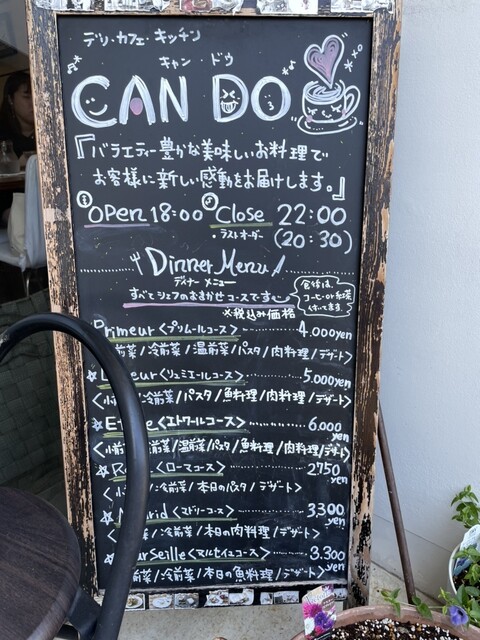 デリ・カフェ・キッチン
キャン・ドゥ
CAN DO
『バラエティー豊かな美味しいお料理で
お客様に新しい感動をお届けします。』
OPEN 18:00 Close 22:00
・ラストオーダー (20:30)
Dinner Menu
ディナー メニュー
すべてシェフのおまかせコースです
食後は、
コーヒーor紅茶
付いてます
※税込み価格
Primeur<プリムールコース> 4.000yen
前菜/冷前菜/温前菜/パスタ/肉料理/デザート>
<リュミエールコース> 5.000yen
<小前 /冷前菜/パスタ/魚料理/肉料理/デザート>
☆ <エトワールコース> 6.000yen
<小前 /冷前菜/温前菜/パスタ/魚料理/肉料理/デザート>
☆ <ローマコース> 2750yen
<小 /冷前菜/本日のパスタ/デザート>
☆ rid<マドリーコース> 3.300yen
/冷前菜/本日の肉料理/デザート>
☆ rseille<マルセイユコース> 3.300yen
前菜/冷前菜/本日の魚料理/デザート>